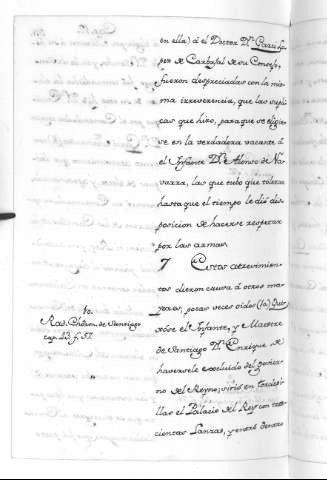 en ella) à el Doctor Dⁿ.
por de Carbajal de su Consejo,
fueron despreciadas con la mis-
ma irreverencia, que las supli-
cas que hizo, para que se eligie-
se en la verdadera vacante à
el Infante Dⁿ. Alonso de Na-
varra, las que tubo que tolerar
hasta que el tiempo le dió dis-
posicion de hacerse respetar
por las armas.
7 Estos atrevimien-
tos dieron causa à otros ma-
yores, pocas veces oidos (10)
el Infante, y Maestre
de Santiago Dⁿ. Enrique de
haversele excluido del govier-
no del Reyno;
el Palacio del Rey con tre-
cientas Lanzas, y entró dentro
10.
Rad. Chron. de Santiago
cap.